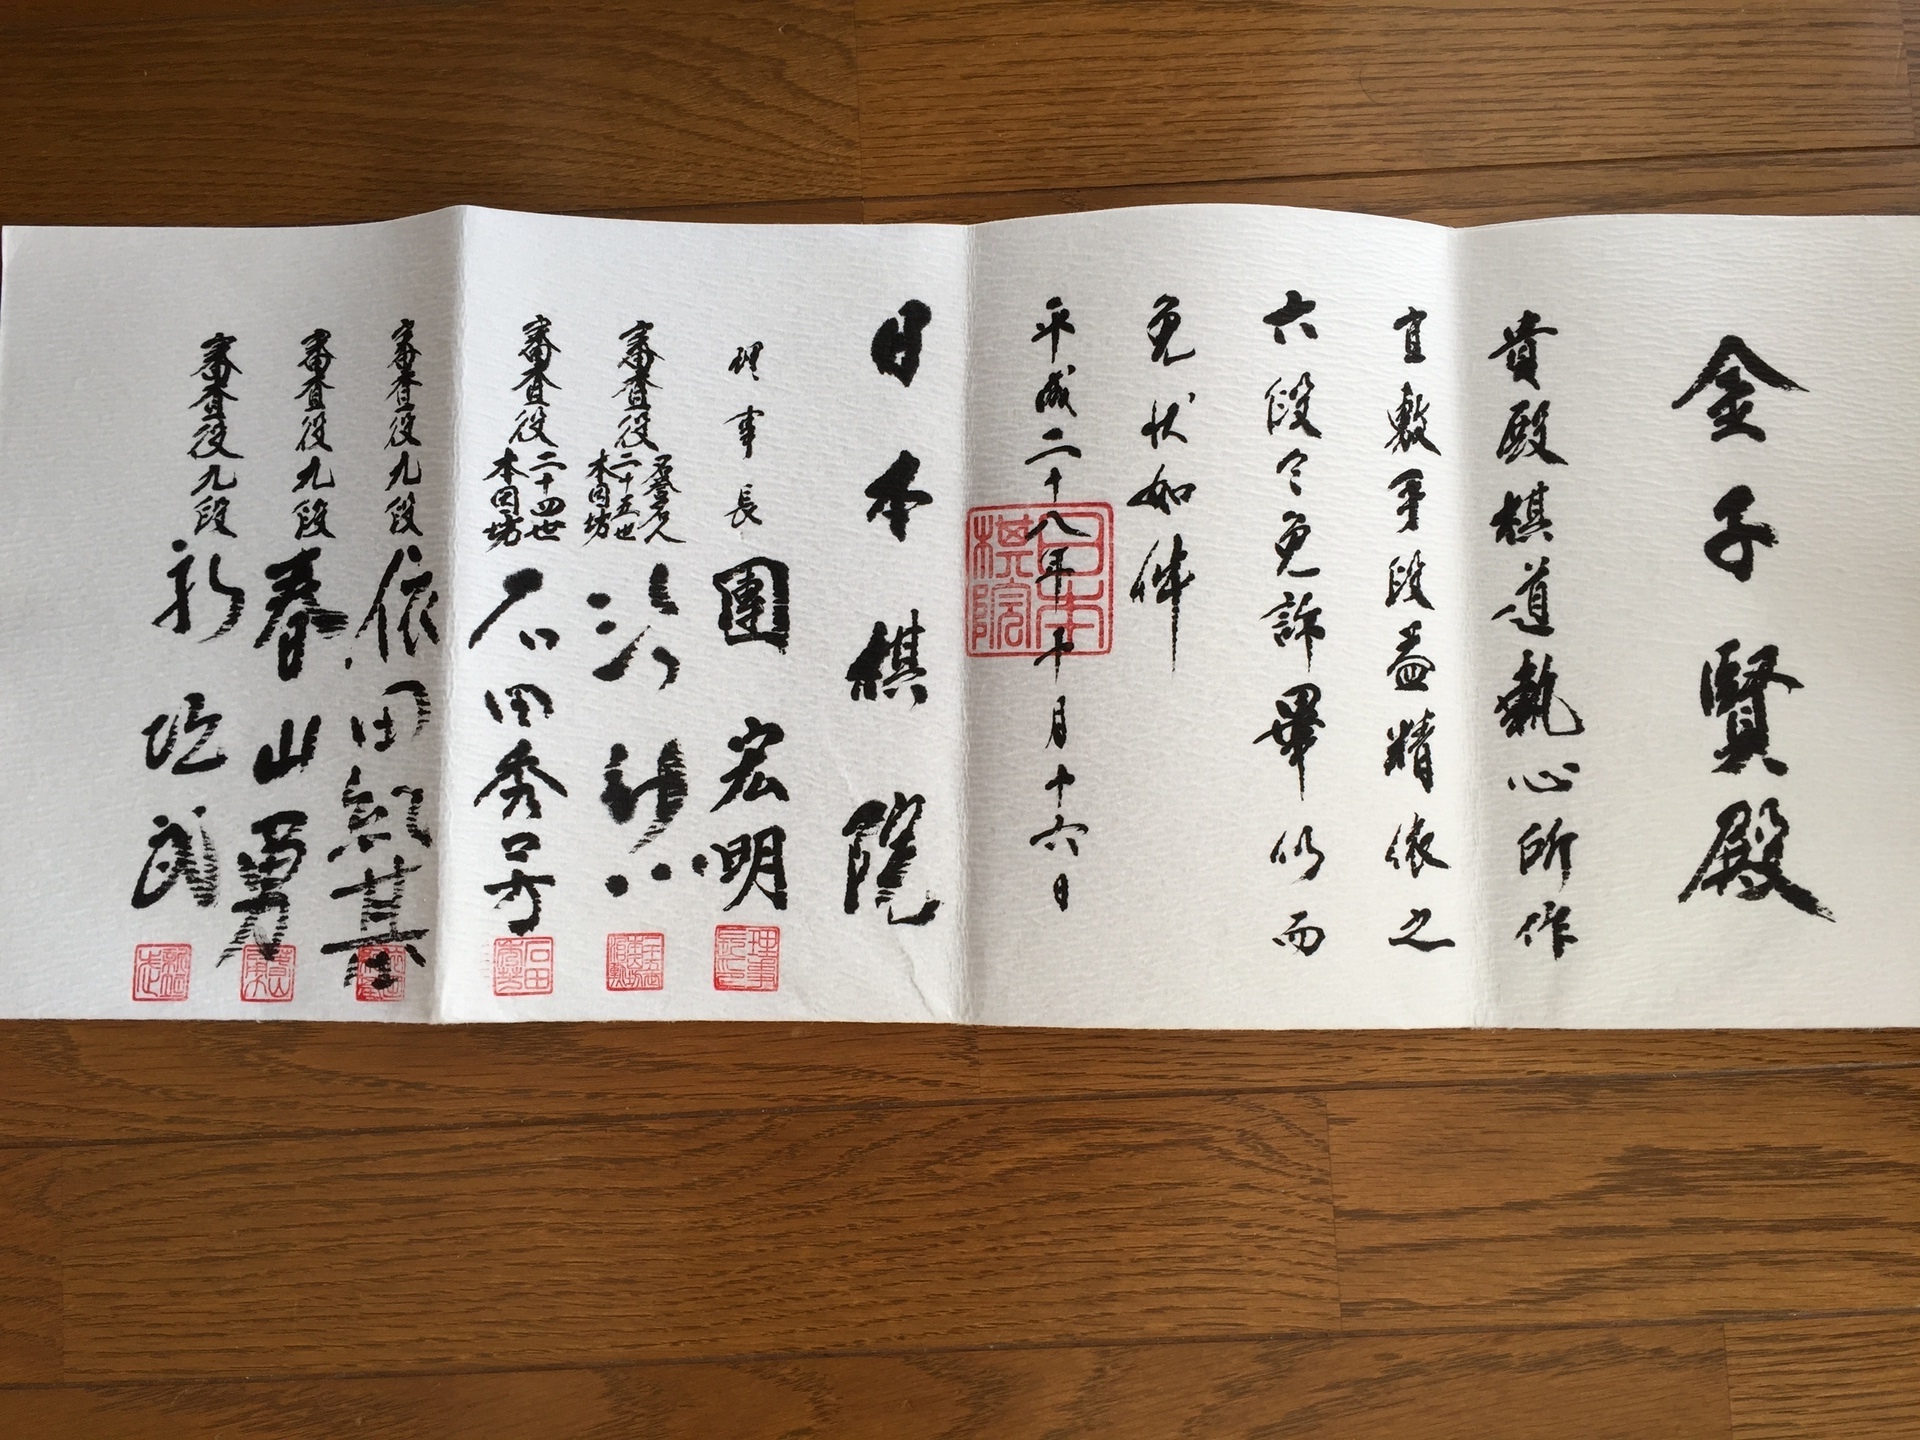 金子賢殿
貴殿棋道執心所作
宜敷手段益精依之
六段令免許畢仍而
免状如件
平成二十八年十月十六日
日本棋院
日本棋院
理事長 團宏明
審査役 名誉名人 二十五世 本因坊 治勲
審査役 二十四世 本因坊 石田秀芳
審査役九段 依田紀基
審査役九段 春山勇
審査役九段 新垣武